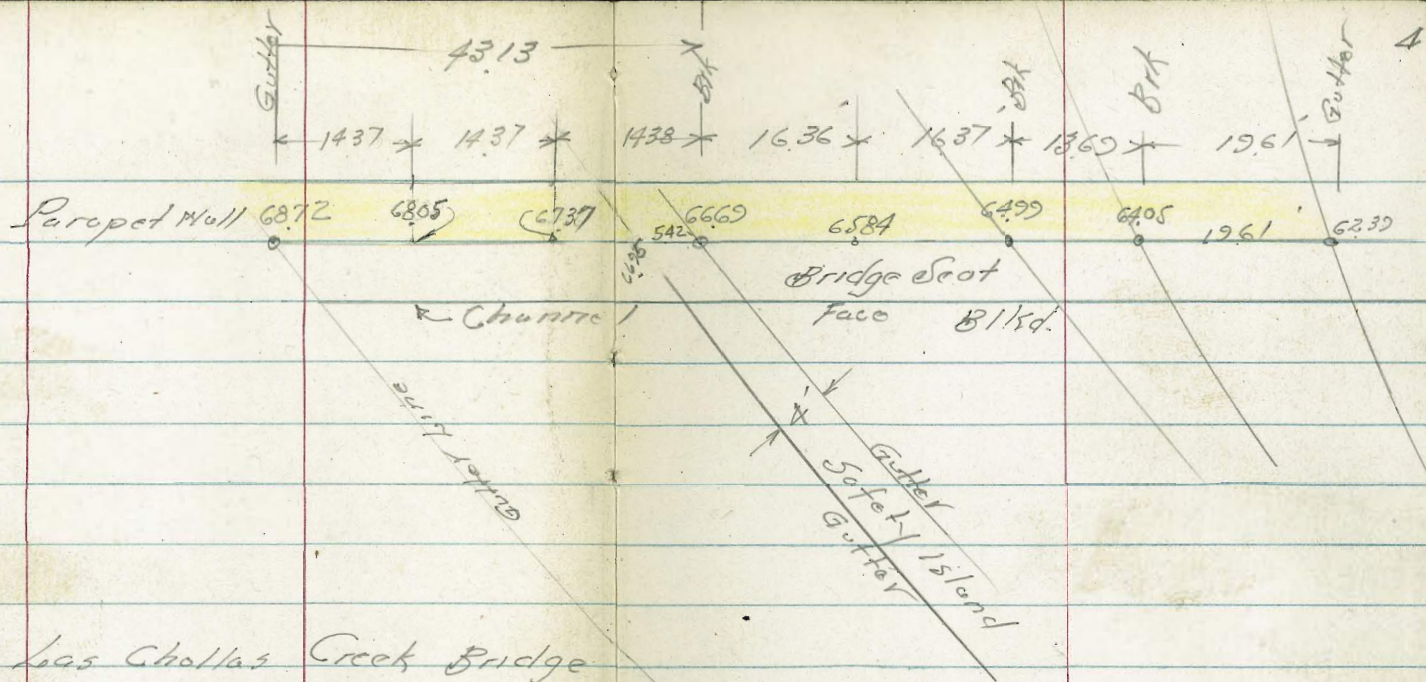 4
Gutter 43.13 Brk Brk Brk Gutter
14.37 14.37 14.38 16.36 16.37 13.69 19.61'
Parapet Wall 68.72 68.05 67.37 5.42 66.69 65.84 64.99 64.05 19.61' 62.39
66.95
Bridge Seat
Channel Face Blkd.
Gutter Line
4'
Gutter
Safety Island
Gutter
Las Chollas Creek Bridge